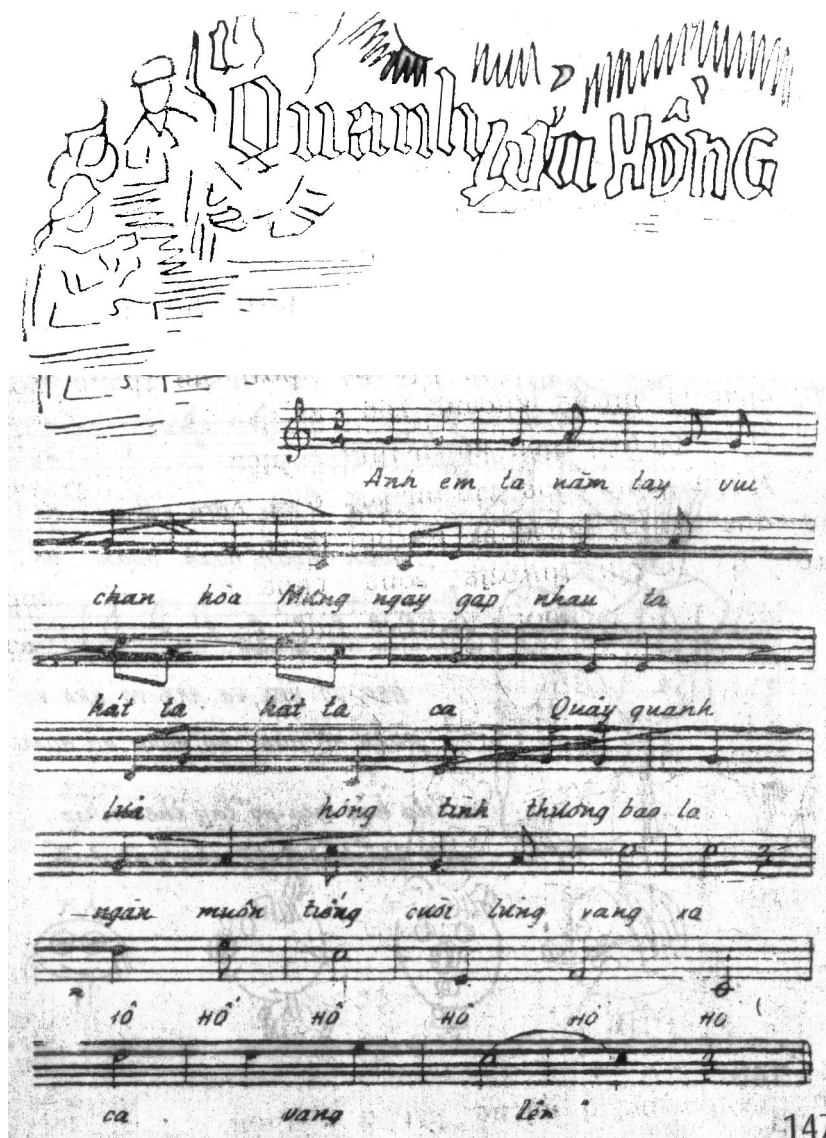 Quanh Lửa Hồng
Anh em ta nắm tay vui
chan hòa Mừng ngày gặp nhau ta
hát ta hát ta ca Quây quanh
lửa hồng tình thương bao la
ngàn muôn tiếng cười lừng vang xa
HỒ HỐ HỒ HỒ HÒ HÒ
ca vang lên
147